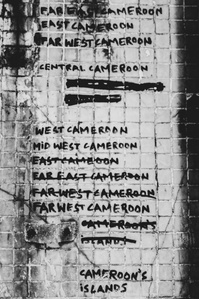 FAR EAST CAMEROON
EAST CAMEROON
FAR WEST CAMEROON
CENTRAL CAMEROON
WEST CAMEROON
MID WEST CAMEROON
EAST CAMEROON
FAR EAST CAMEROON
FAR WEST CAMEROON
FARWEST CAMEROON
CAMEROON'S
ISLANDS
CAMEROON'S
ISLANDS